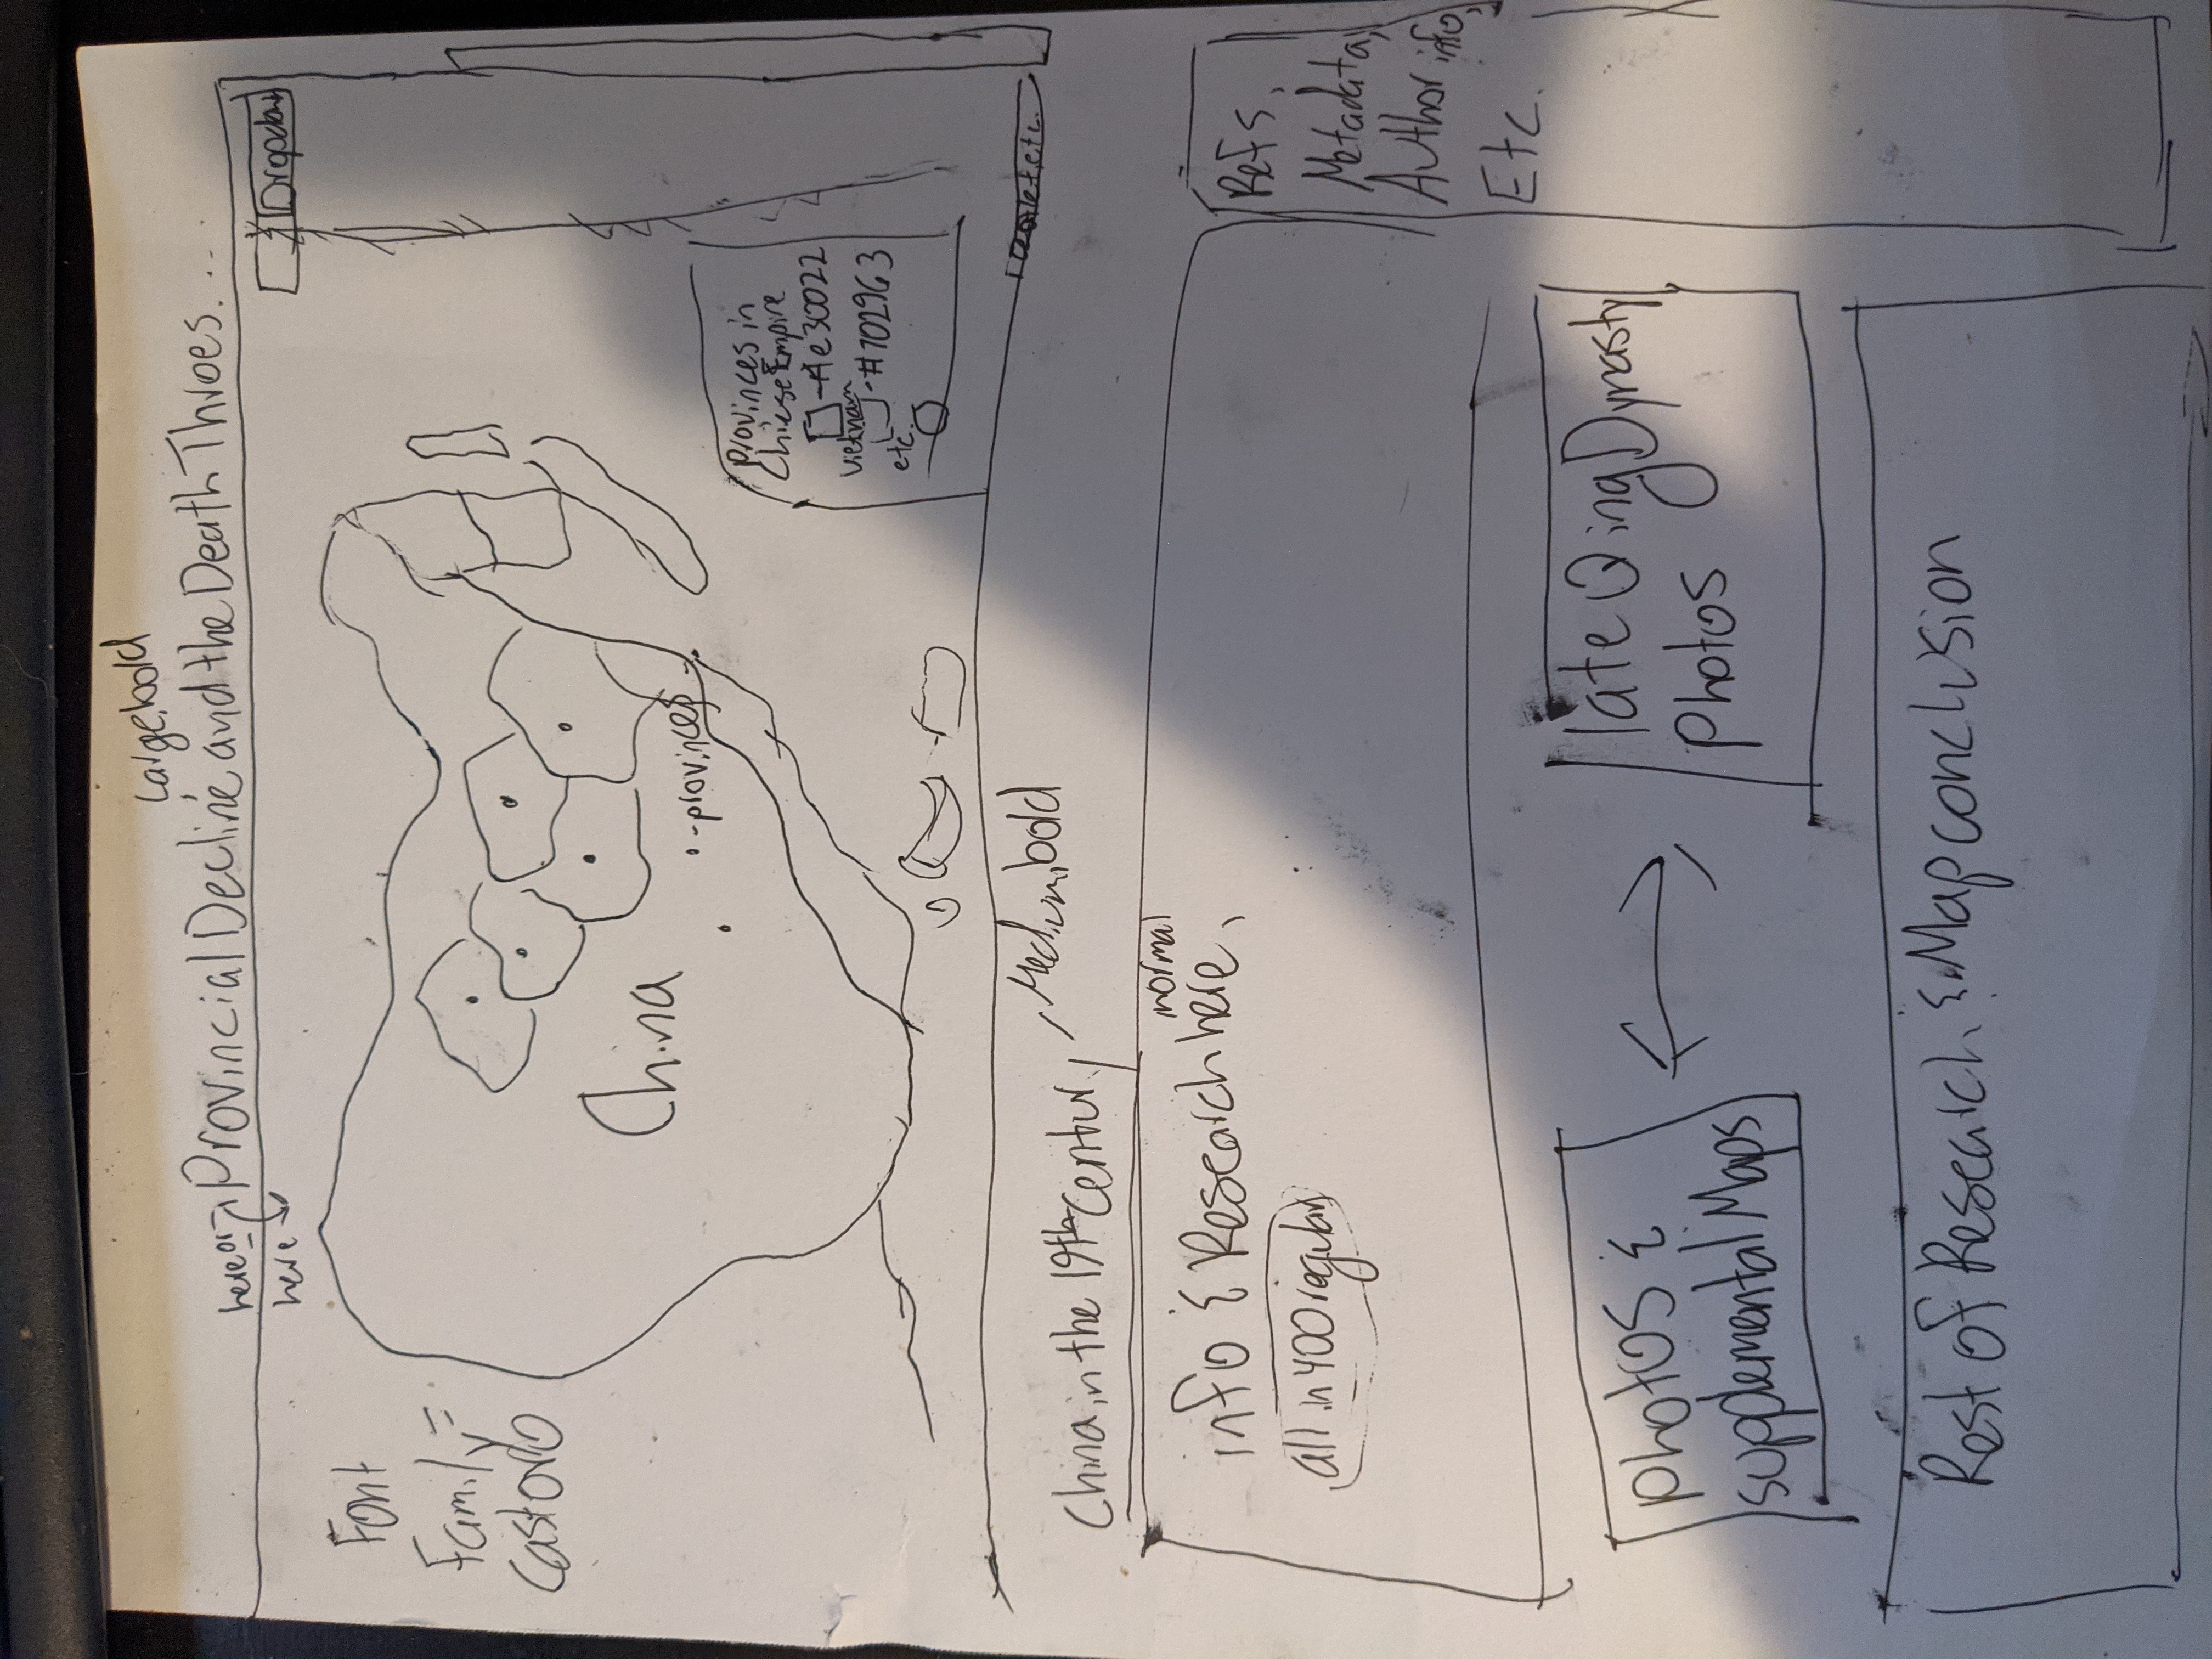 Large, bold
here or
Provincial Decline and the Death Throes....
here
Dropdown
Font
Family =
Castoro
China
provinces
Provinces in
Chiese Empire
#e30022
Vietnam
#702963
etc.
Medium, bold
China in the 19th Century
normal
info & Research here,
all in 400 regular
Refs,
Metadata,
Author info,
Etc.
photos &
supplemental Maps
late Qing Dynasty
Photos
Rest of Research & Map conclusion